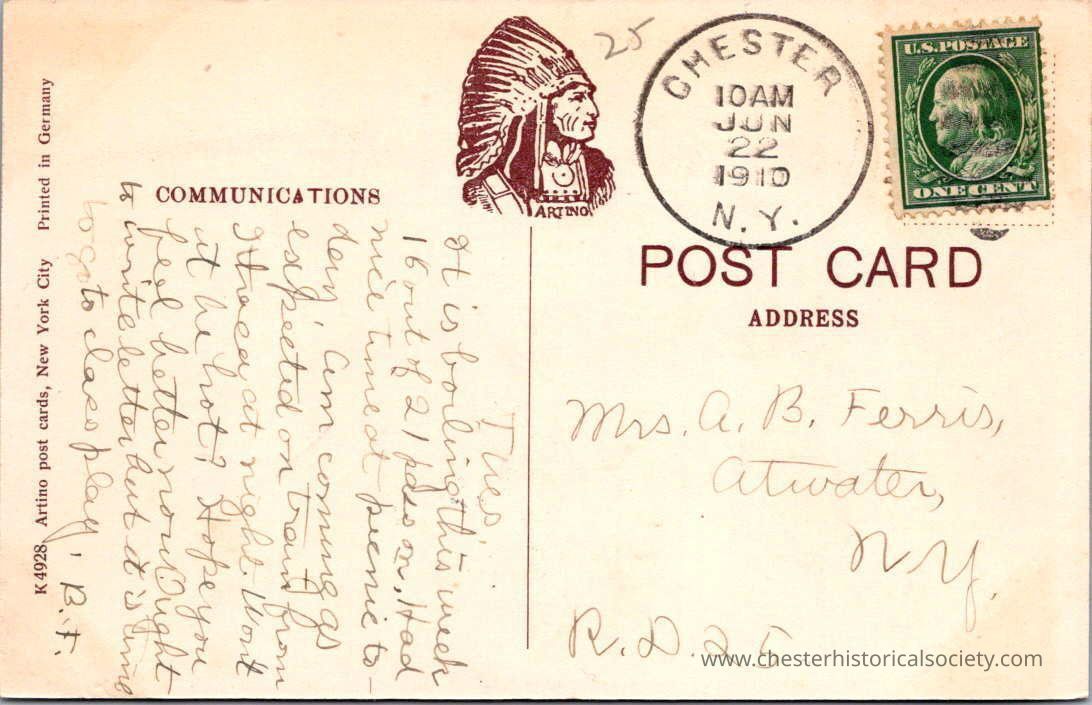 COMMUNICATIONS
ARTINO
25
CHESTER
10AM
JUN
22
1910
N.Y.
U.S.POSTAGE
ONE CENT
POST CARD
ADDRESS
Mrs. A. B. Ferris,
Atwater,
N.Y.
R.D.
Tues.
It is boiling this week
16 out of 21 pass on, Had
nice time at picnic to-
day. Am coming as
expected on train from
Ithaca at night. Wont
it be hot? Hope you
feel better now. Ought
to write letter but it is time
to go to class play. B.F.
K4928 Artino post cards, New York City Printed in Germany
www.chesterhistoricalsociety.com